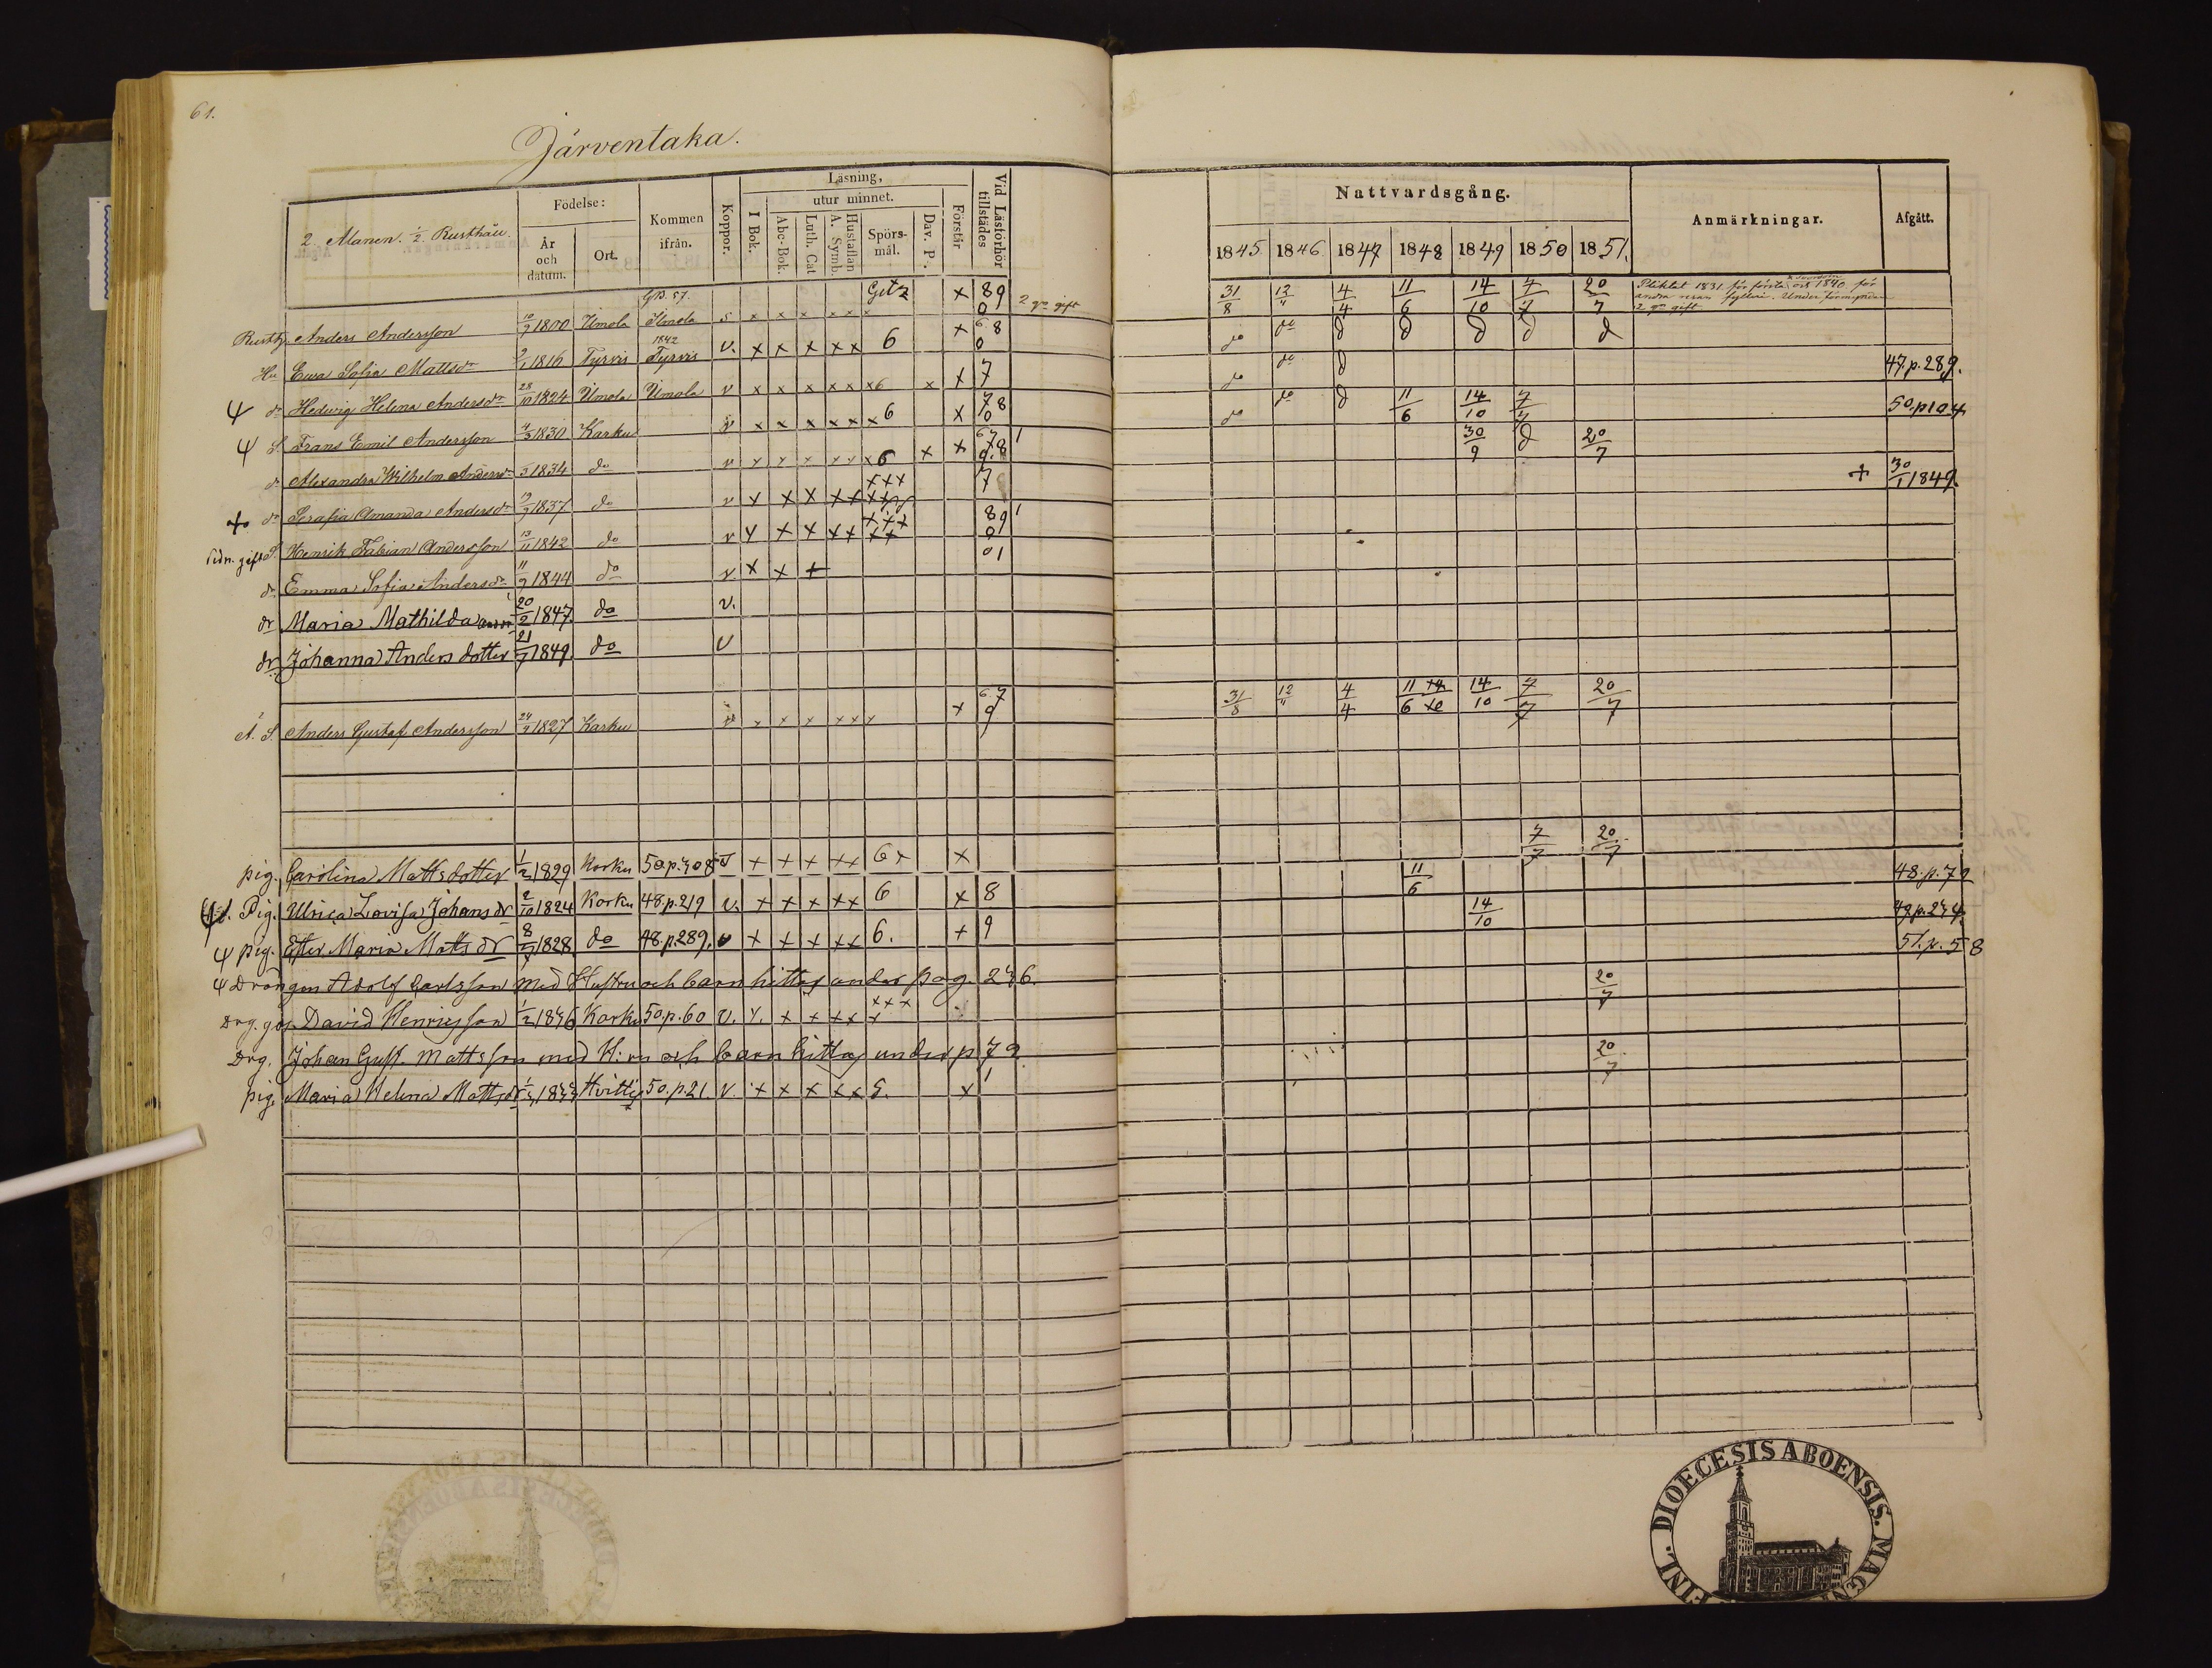 61.
Järventaka.
2 Manen. 1/2 Rusthåll.
Födelse:
År och datum.
Ort.
Kommen ifrån.
Koppor.
Läsning,
I Bok.
utur minnet.
Abc-Bok.
Luth. Cat
Hustaflan A. Symb.
Spörsmål.
Dav. P.
Förstår
Vid Läsförhör tillstädes
Nattvardsgång.
1845 1846 1847 1848 1849 1850 1851.
Anmärkningar.
Afgått.
Rusth. Anders Andersson 10/7 1800 Umola s x x x x x x x 8 9 0 2 gn gift 31/8 12/4 4/4 11/6 14/10 7/7 20/7 Pliktat 1831 för första och 1840 för andra resan fylleri. Under förmyndare 2 gn gift
Hu Ewa Sofia Mattsdr 2/1 1816 Tyrvis 1842 Tyrvis v. x x x x x 6 x 6 8 0 do do d d d d d
Ψ dr Hedvig Helena Andersdr 28/10 1824 Umola Umola v x x x x x x 6 x x 7 7 do do d 47.p.289.
Ψ S. Frans Emil Andersson 4/3 1830 Karku v x x x x x x 6 x 7 8 0 do do d 11/6 14/10 7/7 50.p104
dr Alexandra Wilhelm. Andersdr 1834 do v x x x x x x 6 x x 30/9 d 20/7
dr Serafia Amanda Andersdr 19/9 1837 do v x x x x x 7 + 30/1 1849.
S. Henrik Fabian Andersson 13/11 1842 do v x x x x x x x 8 9 0 1
dr Emma Sofia Andersdr 11/9 1844 do v x x + 0 1
dr Maria Mathilda 20/2 1847 do v.
dr Johanna Anders dotter 21/7 1849. do v
Ä. S. Anders Gustaf Andersson 24/9 1827 Karku v x x x x x x x 6 7 9 31/8 12/4 4/4 11/6 14/10 7/7 20/7
pig. Carolina Mattsdotter 1/2 1829 Karku x x x x x 6 x x 7/7 20/7
Pig. Ulrica Lovisa Johansdr 2/10 1824 Karku 48.p.219 v. x x x x x 6 x 8 11/6 48.p.72
Ψ pig. Ester Maria Mattsdr 8/7 1828 do 48.p.289. v x x x x x 6. x 9 14/10 49.p.234.
Ψ Drängen Adolf Carlsson med Hustru och barn hittas under pag. 236. 51.p.58
Drg. gos. David Henricsson 1/2 1836 Karku 50.p.60 v. v. x x x x x x x x 20/7
Drg. Johan Gust Mattsson med H:ru och barn hittas under p 72
pig. Maria Helena Mattsdr 1833 Hvittis 50.p.21. v. x x x x x 5. x 1 20/7
DIOECESIS ABOENSIS.